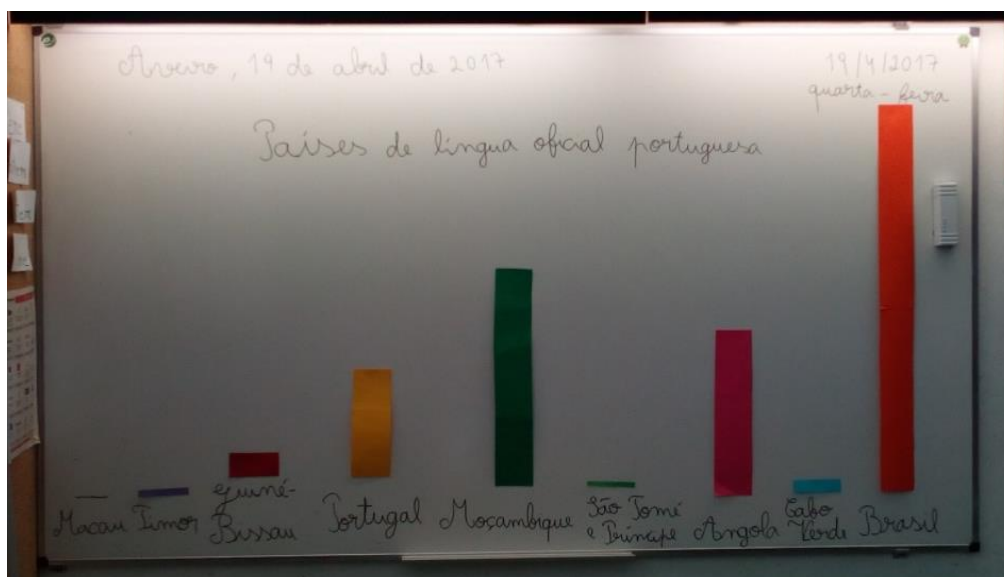 Aveiro, 19 de abril de 2017
19/4/2017
quarta-feira
Países de língua oficial portuguesa
Macau
Timor
Guiné-
Bissau
Portugal
Moçambique
São Tomé
e Príncipe
Angola
Cabo
Verde
Brasil